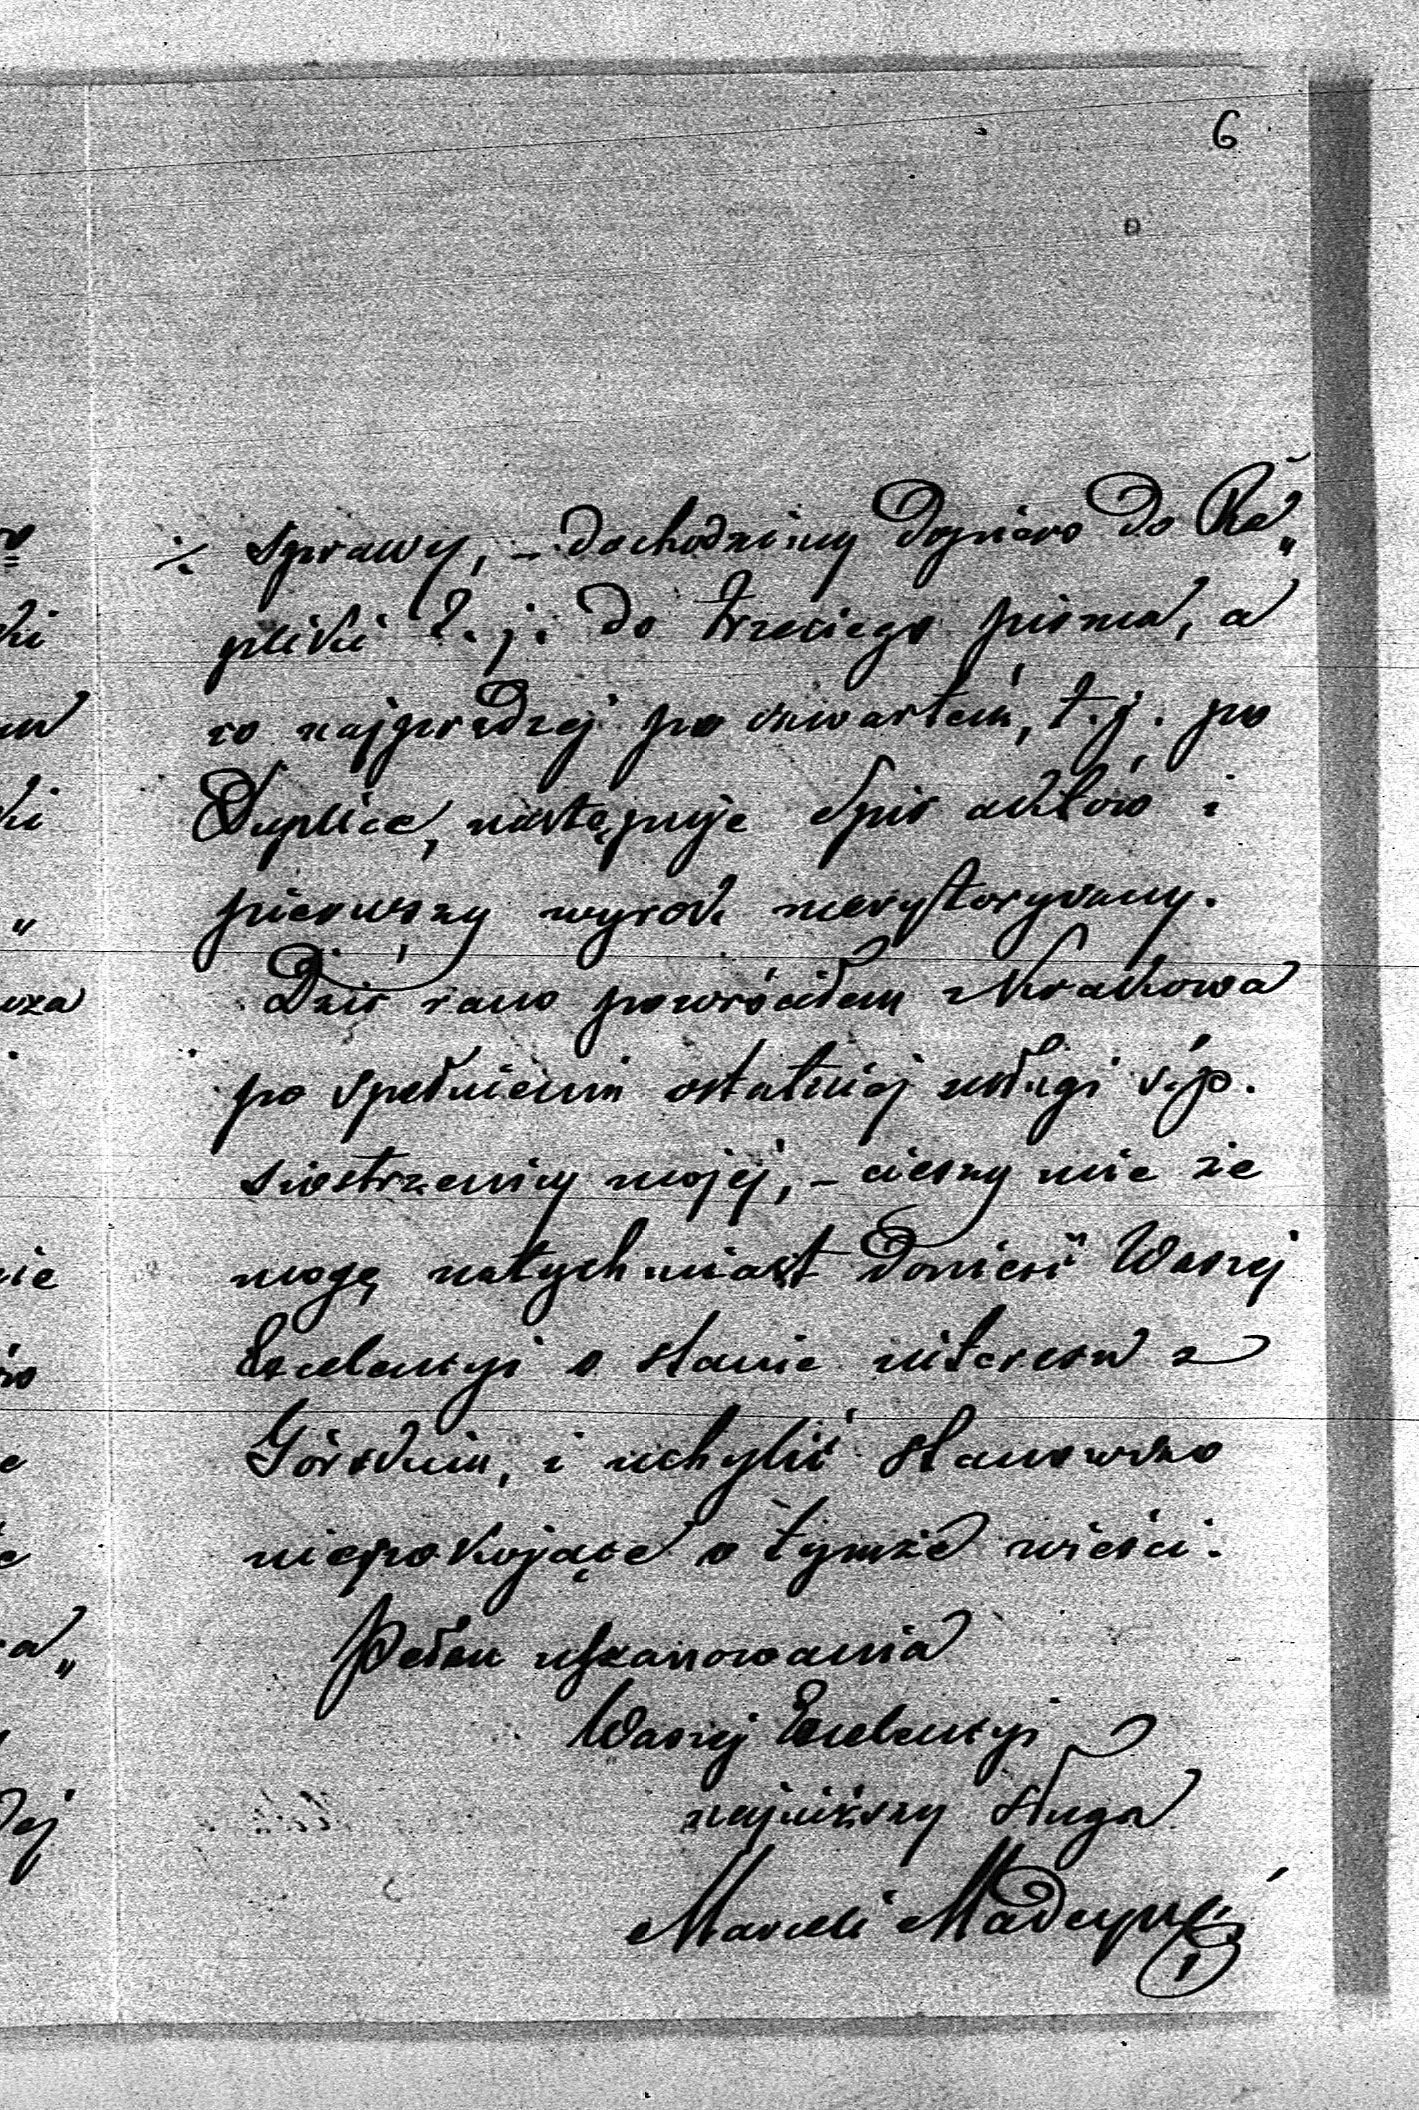 6
./. sprawy, – dochodzimy dopiero do Re„
pliki t. j. do trzeciego pisma, a
co najprędzej po czwartem, t. j. po
Duplice, następuje spis aktów i
pierwszy wyrok merytoryczny.
Dziś rano powróciłem z Krakowa
po spełnieniu ostatniej usługi ś.p.
siostrzenicy mojej, – cieszy mie że
mogę natychmiast donieść Waszej
Excelencyi o stanie interesu z
Górskim, i uchylić stanowczo
niepokojące o tymże wieści.
Pełen uszanowania
Waszej Excelencyi
najniższy sługa
Marceli Madeyski